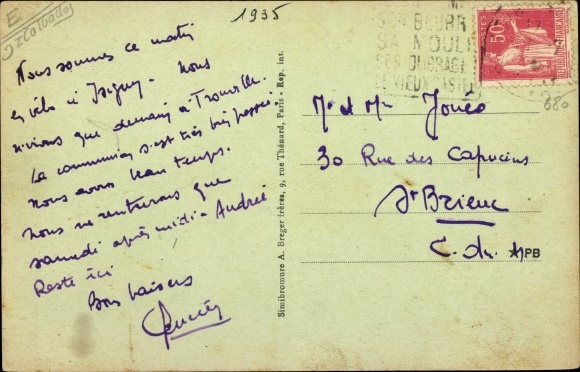 E
Calvados
1935
Nous sommes ce matin
en vélo à Isigny. Nous
n'irons que demain à Trouville.
La communion s'est très bien passée.
Nous avons beau temps.
Nous ne rentrerons que
samedi après midi - Andrée
Reste ici
Bons baisers
Simibromure A. Breger frères, 9, rue Thénard, Paris - Rep. int.
SON BEURR
SA MOUL
SES OMBRAGES
LE VIEUX CASTEL
POSTES
50c
REPUBLIQUE FRANÇAISE
680
Mr et Mme Jouéo
30 Rue des Capucins
St Brieuc
C. du N.
PB